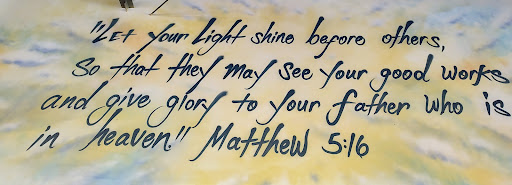 "Let your light shine before others,
So that they may see your good works
and give glory to your father who is
in heaven!" Matthew 5:16